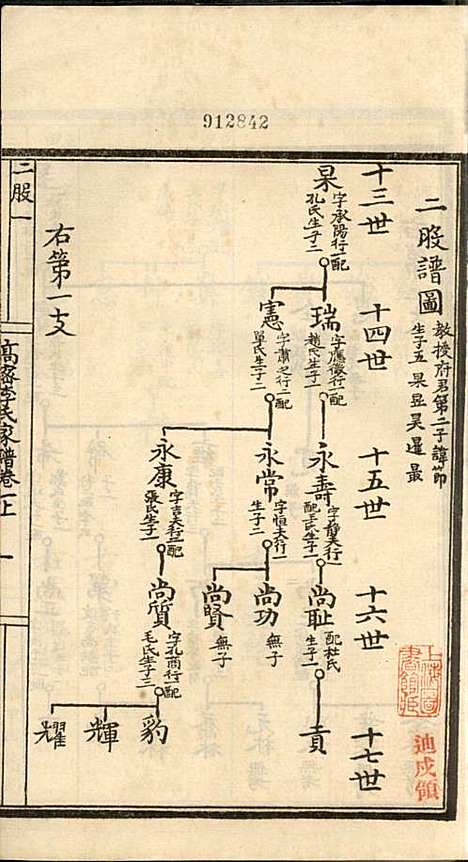 912842
二股譜圖
教授府君第二子諱節
生子五 杲昱昊暹最
十三世
十四世
十五世
十六世
十七世
杲
字承陽行一配
孔氏生子二
瑞
字應徵行一配
趙氏生子一
憲
字肅之行二配
單氏生子二
永壽
字靜夫行一
配王氏生子一
永常
字恒夫行一
生子二
永康
字吉夫行二配
張氏生子一
尚耻
配杜氏
生子一
尚功
無子
尚賢
無子
尚質
字孔商行一配
毛氏生子三
貢
豹
輝
耀
右第一支
二股一
高密李氏家譜卷上
一
上海圖書館藏